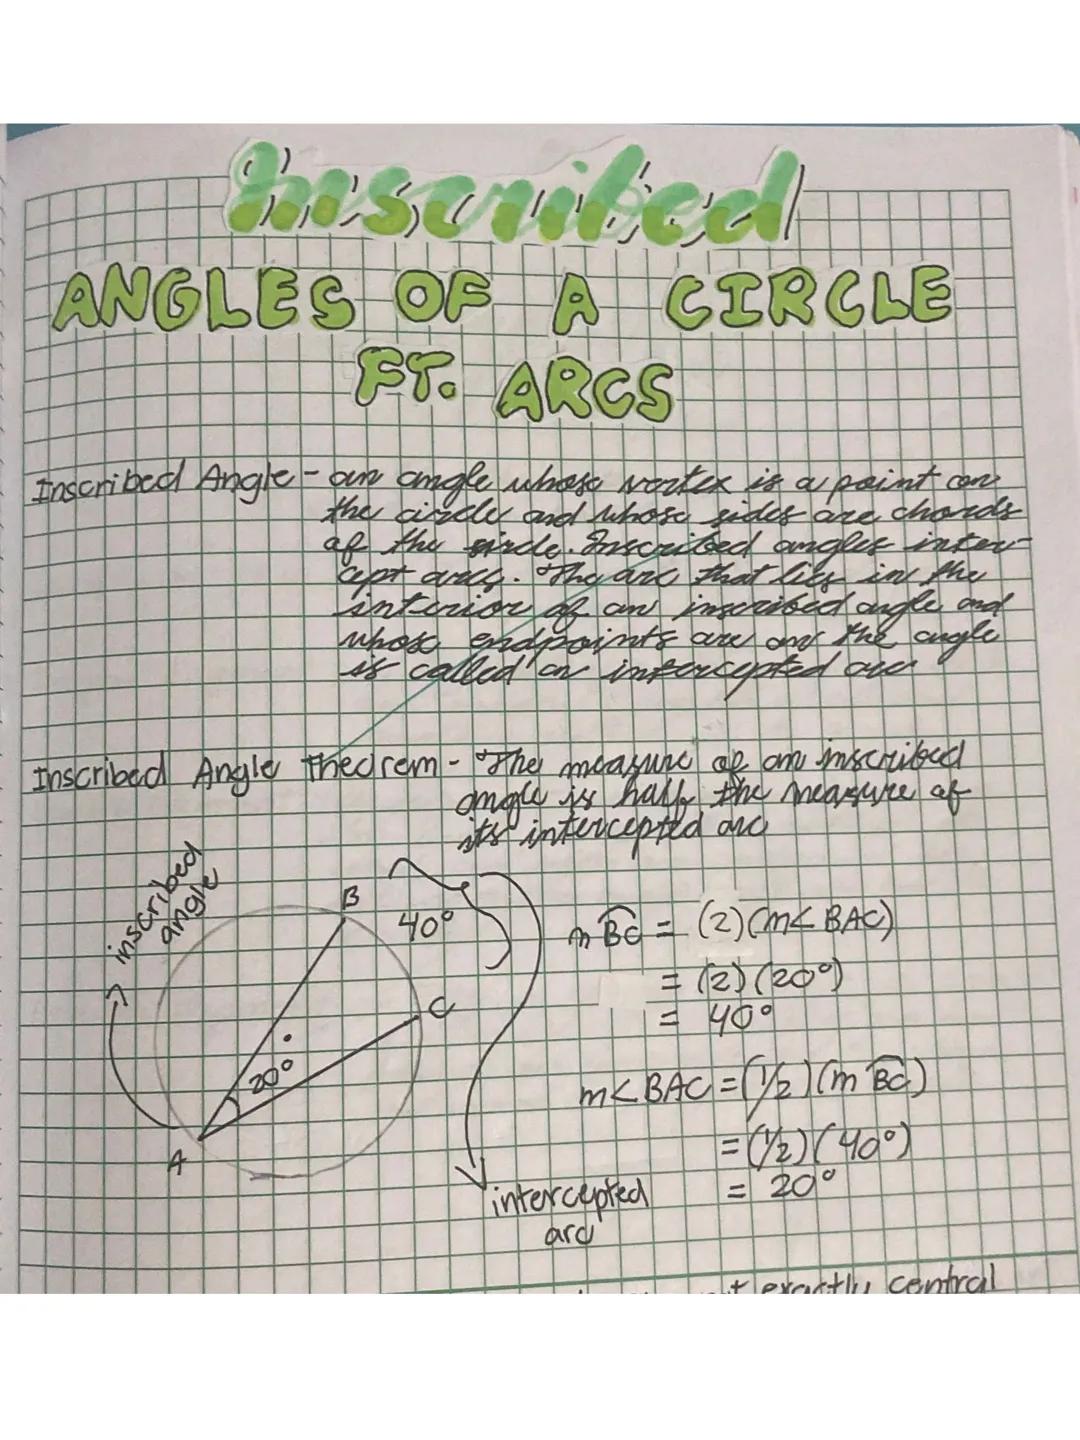 Inscribed
ANGLES OF A CIRCLE
FT. ARCS
Inscribed Angle - an angle whose vertex is a point on
the circle and whose sides are chords
of the circle. Inscribed angles inter-
cept arcs. The arc that lies in the
interior of an inscribed angle and
whose endpoints are on the angle
is called an intercepted arc
Inscribed Angle Theorem - The measure of an inscribed
angle is half the measure of
its intercepted arc
inscribed
angle
B
40°
C
20°
A
intercepted
arc
m BC = (2)(m< BAC)
= (2)(20°)
= 40°
m< BAC = (1/2)(m BC)
= (1/2)(40°)
= 20°
exactly central